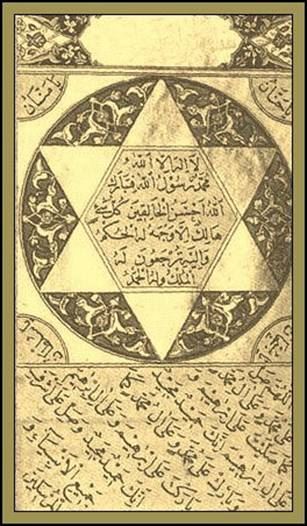 يا حنان
يا منان
لا اله الا الله
محمد رسول الله فتبارك
الله احسن الخالقين كل شئ
هالك الا وجهه له الحكم
واليه ترجعون له
الملك وله الحمد
اللهم صل
على محمد وعلى ال محمد
كما صليت على ابراهيم و
على ال ابراهيم انك حميد مجيد
وبارك على محمد وعلى ال محمد كما
باركت على ابراهيم وعلى ال ابراهيم
انك حميد مجيد وصل على
جميع الانبياء و